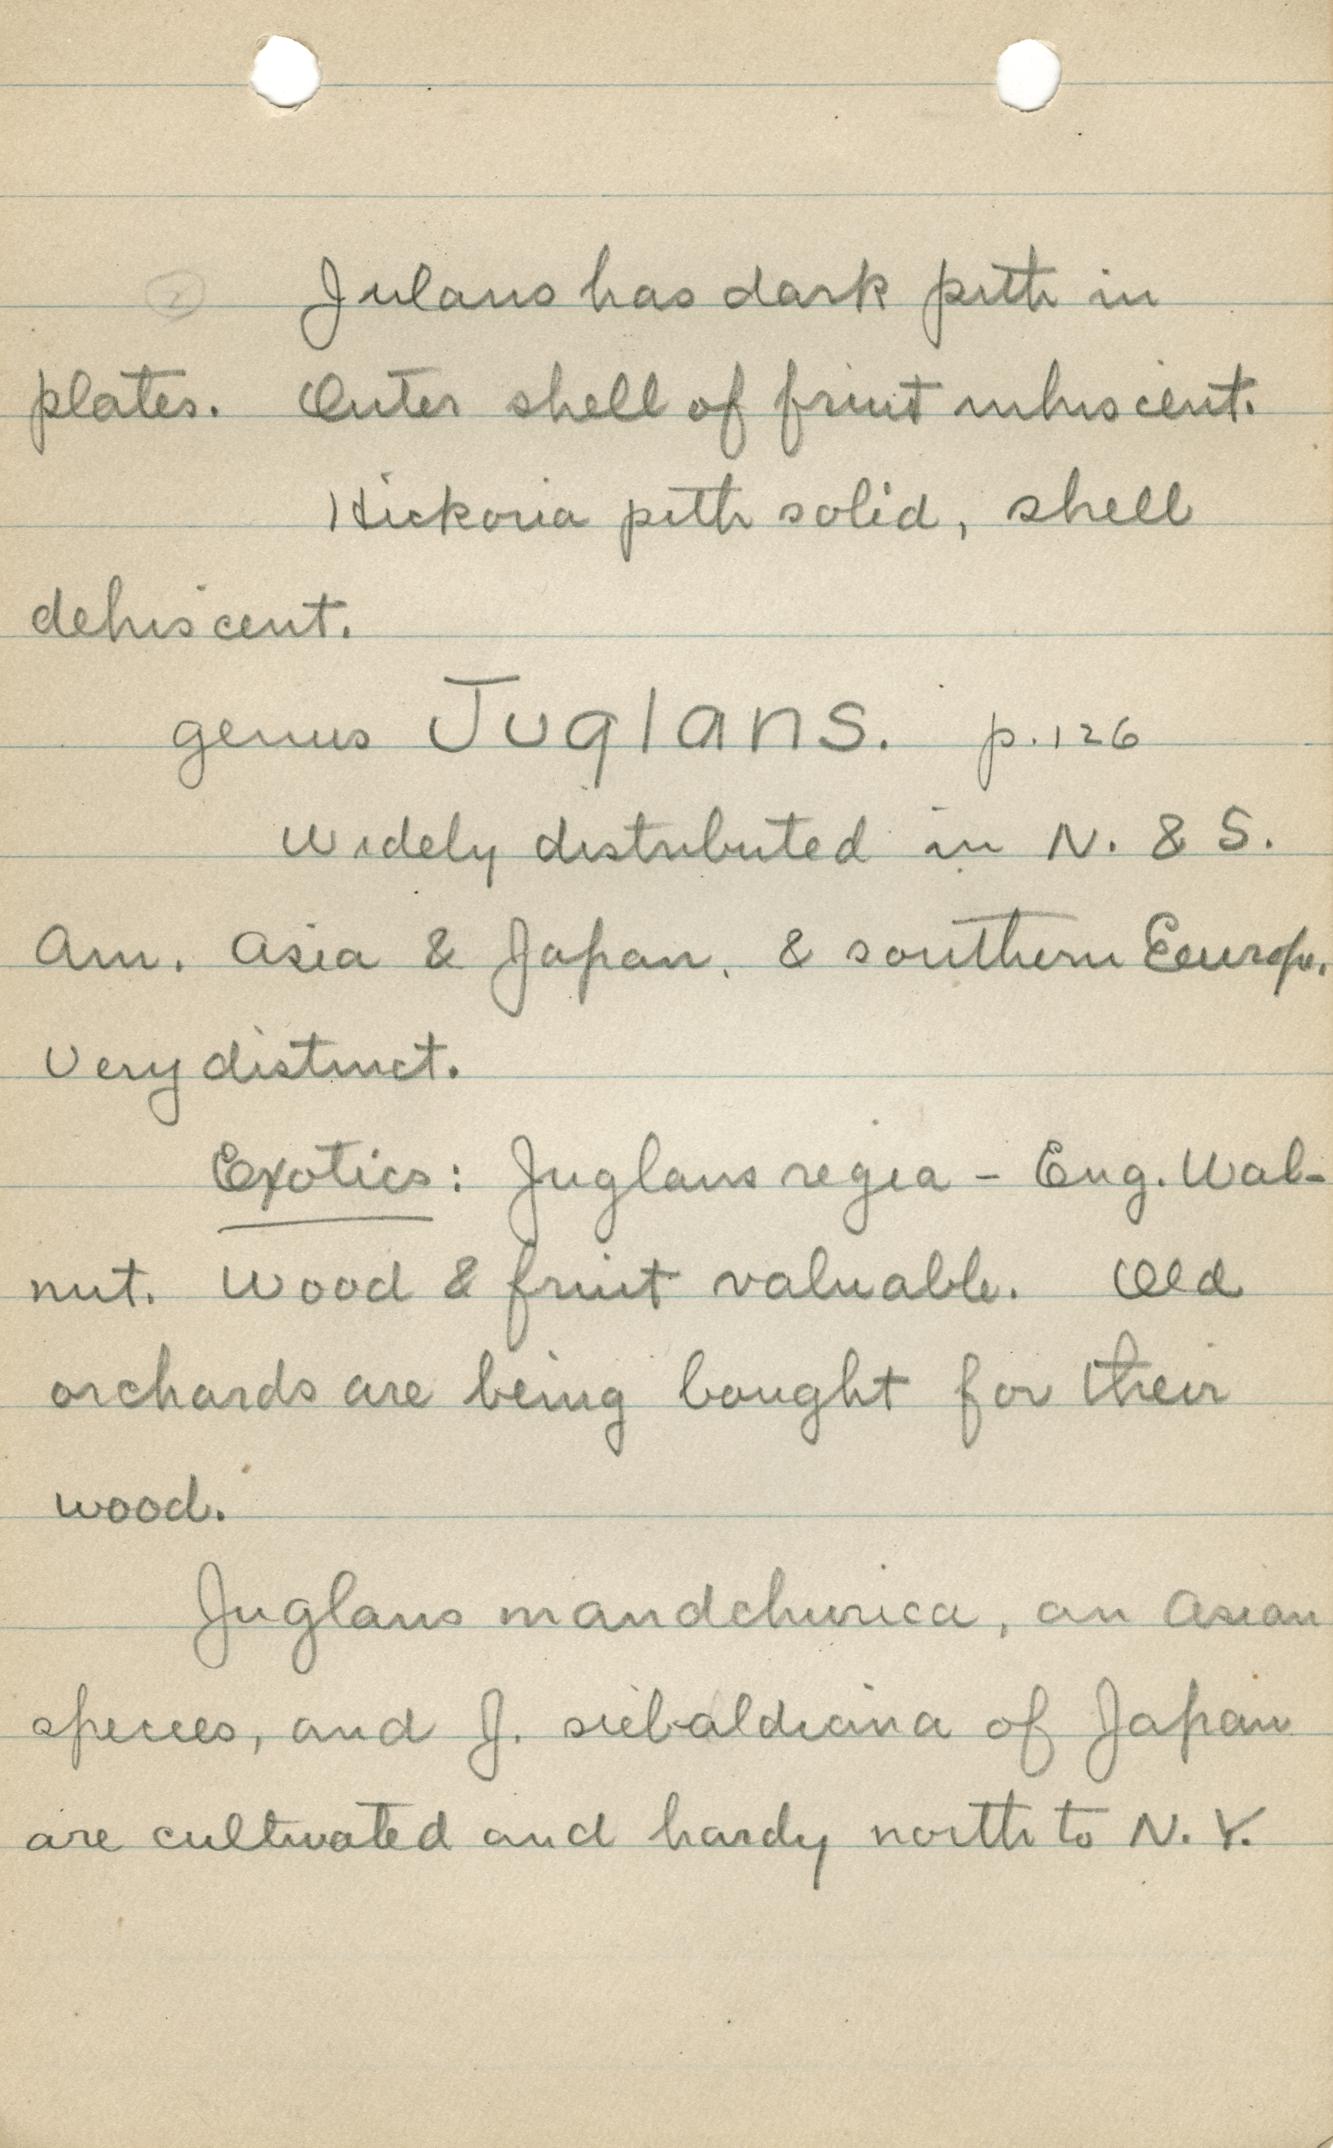 ② Julans has dark pith in
plates. Outer shell of fruit inhiscent.
Hickoria pith solid, shell
dehiscent.
genus Juglans. p. 126
Widely distributed in N. & S.
Am. Asia & Japan, & southern Eeurope.
Very distinct.
Exotics: Juglans regia - Eng. Wal-
nut. Wood & fruit valuable. Old
orchards are being bought for their
wood.
Juglans mandchurica, an Asian
species, and J. siebaldiana of Japan
are cultivated and hardy north to N. Y.